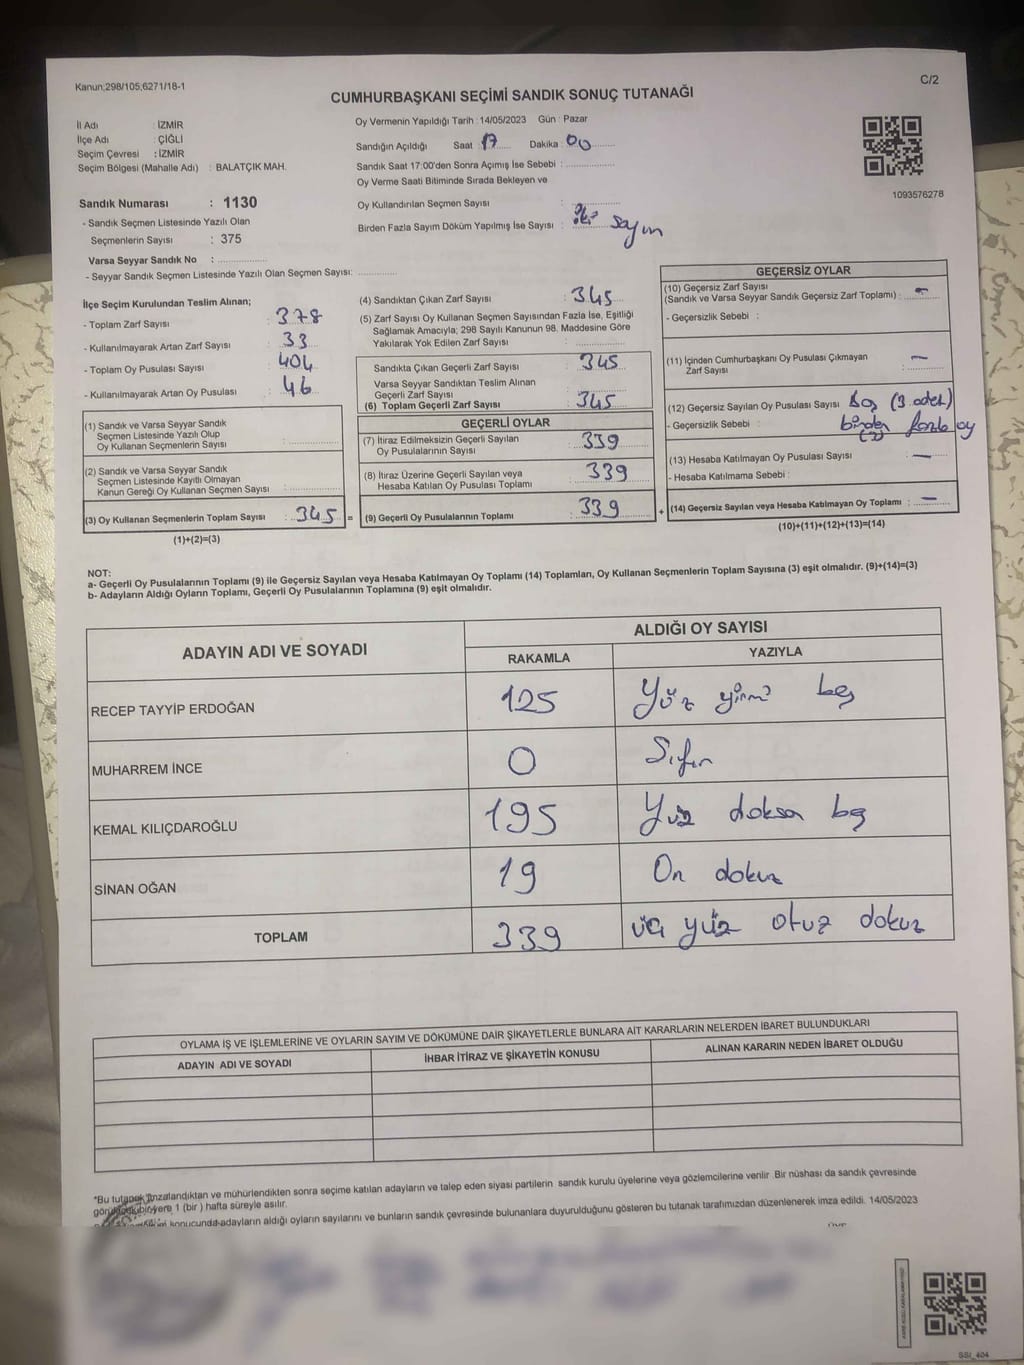 Kanun;298/105;6271/18-1
C/2
CUMHURBAŞKANI SEÇİMİ SANDIK SONUÇ TUTANAĞI
İl Adı : İZMİR
İlçe Adı : ÇİĞLİ
Seçim Çevresi : İZMİR
Seçim Bölgesi (Mahalle Adı) : BALATÇIK MAH.
Oy Vermenin Yapıldığı Tarih : 14/05/2023 Gün : Pazar
Sandığın Açıldığı Saat : 17 Dakika : 00
Sandık Saat 17:00'den Sonra Açımış İse Sebebi :
Oy Verme Saati Bitiminde Sırada Bekleyen ve
Oy Kullandırılan Seçmen Sayısı :
Birden Fazla Sayım Döküm Yapılmış İse Sayısı : iki sayım
1093576278
Sandık Numarası : 1130
- Sandık Seçmen Listesinde Yazılı Olan
Seçmenlerin Sayısı : 375
Varsa Seyyar Sandık No :
- Seyyar Sandık Seçmen Listesinde Yazılı Olan Seçmen Sayısı:
İlçe Seçim Kurulundan Teslim Alınan;
- Toplam Zarf Sayısı : 378
- Kullanılmayarak Artan Zarf Sayısı : 33
- Toplam Oy Pusulası Sayısı : 404
- Kullanılmayarak Artan Oy Pusulası : 46
(1) Sandık ve Varsa Seyyar Sandık
Seçmen Listesinde Yazılı Olup
Oy Kullanan Seçmenlerin Sayısı :
(2) Sandık ve Varsa Seyyar Sandık
Seçmen Listesinde Kayıtlı Olmayan
Kanun Gereği Oy Kullanan Seçmen Sayısı :
(3) Oy Kullanan Seçmenlerin Toplam Sayısı : 345 =
(1)+(2)=(3)
(4) Sandıktan Çıkan Zarf Sayısı : 345
(5) Zarf Sayısı Oy Kullanan Seçmen Sayısından Fazla İse, Eşitliği
Sağlamak Amacıyla; 298 Sayılı Kanunun 98. Maddesine Göre
Yakılarak Yok Edilen Zarf Sayısı :
Sandıkta Çıkan Geçerli Zarf Sayısı : 345
Varsa Seyyar Sandıktan Teslim Alınan
Geçerli Zarf Sayısı :
(6) Toplam Geçerli Zarf Sayısı : 345
GEÇERLİ OYLAR
(7) İtiraz Edilmeksizin Geçerli Sayılan
Oy Pusulalarının Sayısı : 339
(8) İtiraz Üzerine Geçerli Sayılan veya
Hesaba Katılan Oy Pusulası Toplamı : 339
(9) Geçerli Oy Pusulalarının Toplamı : 339 +
GEÇERSİZ OYLAR
(10) Geçersiz Zarf Sayısı
(Sandık ve Varsa Seyyar Sandık Geçersiz Zarf Toplamı) : -
- Geçersizlik Sebebi :
(11) İçinden Cumhurbaşkanı Oy Pusulası Çıkmayan
Zarf Sayısı : -
(12) Geçersiz Sayılan Oy Pusulası Sayısı : Boş (3 adet)
- Geçersizlik Sebebi : birden fazla oy
(3)
(13) Hesaba Katılmayan Oy Pusulası Sayısı : -
- Hesaba Katılmama Sebebi :
(14) Geçersiz Sayılan veya Hesaba Katılmayan Oy Toplamı : -
(10)+(11)+(12)+(13)=(14)
NOT:
a- Geçerli Oy Pusulalarının Toplamı (9) ile Geçersiz Sayılan veya Hesaba Katılmayan Oy Toplamı (14) Toplamları, Oy Kullanan Seçmenlerin Toplam Sayısına (3) eşit olmalıdır. (9)+(14)=(3)
b- Adayların Aldığı Oyların Toplamı, Geçerli Oy Pusulalarının Toplamına (9) eşit olmalıdır.
ADAYIN ADI VE SOYADI
ALDIĞI OY SAYISI
RAKAMLA YAZIYLA
RECEP TAYYİP ERDOĞAN 125 Yüz yirmi beş
MUHARREM İNCE 0 Sıfır
KEMAL KILIÇDAROĞLU 195 Yüz doksan beş
SİNAN OĞAN 19 On dokuz
TOPLAM 339 üç yüz otuz dokuz
OYLAMA İŞ VE İŞLEMLERİNE VE OYLARIN SAYIM VE DÖKÜMÜNE DAİR ŞİKAYETLERLE BUNLARA AİT KARARLARIN NELERDEN İBARET BULUNDUKLARI
ADAYIN ADI VE SOYADI İHBAR İTİRAZ VE ŞİKAYETİN KONUSU ALINAN KARARIN NEDEN İBARET OLDUĞU
*Bu tutanak imzalandıktan ve mühürlendikten sonra seçime katılan adayların ve talep eden siyasi partilerin sandık kurulu üyelerine veya gözlemcilerine verilir. Bir nüshası da sandık çevresinde
görülebilir yere 1 (bir ) hafta süreyle asılır.
konucunda adayların aldığı oyların sayılarını ve bunların sandık çevresinde bulunanlara duyurulduğunu gösteren bu tutanak tarafımızdan düzenlenerek imza edildi. 14/05/2023
SSI_404